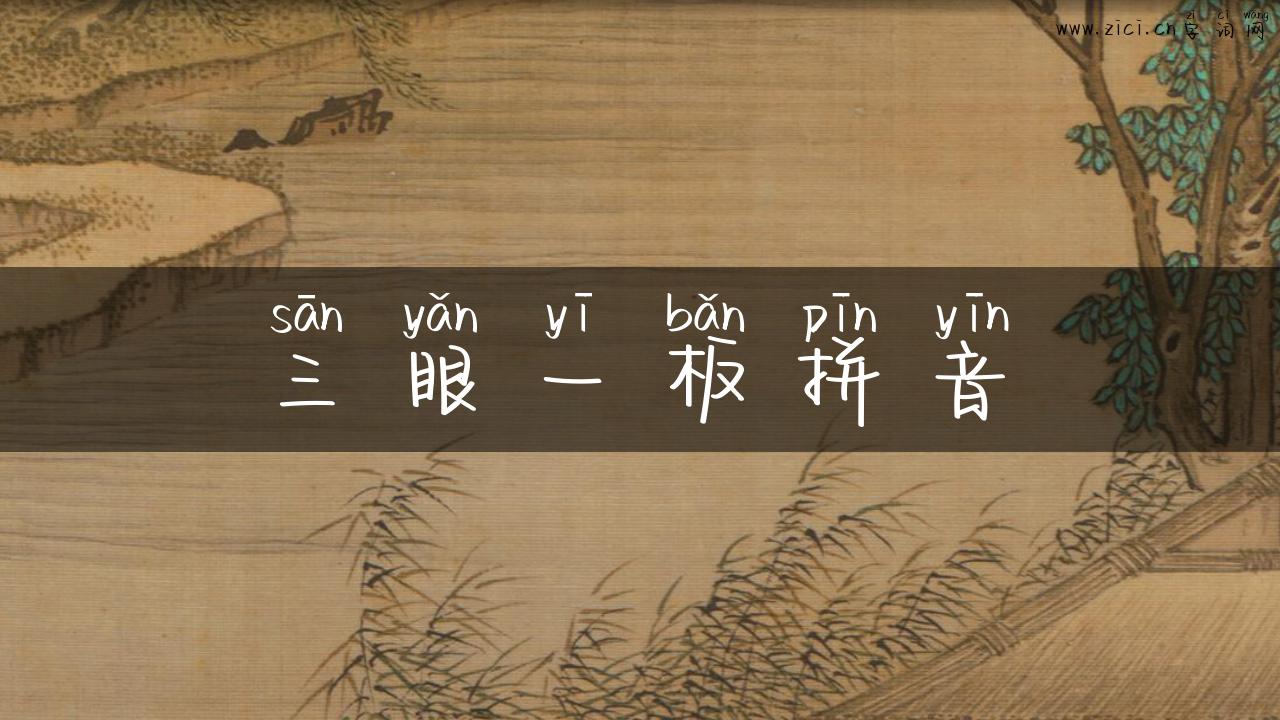 zì cí wǎng
www.zici.cn 字词网
sān yǎn yī bǎn pīn yīn
三眼一板拼音